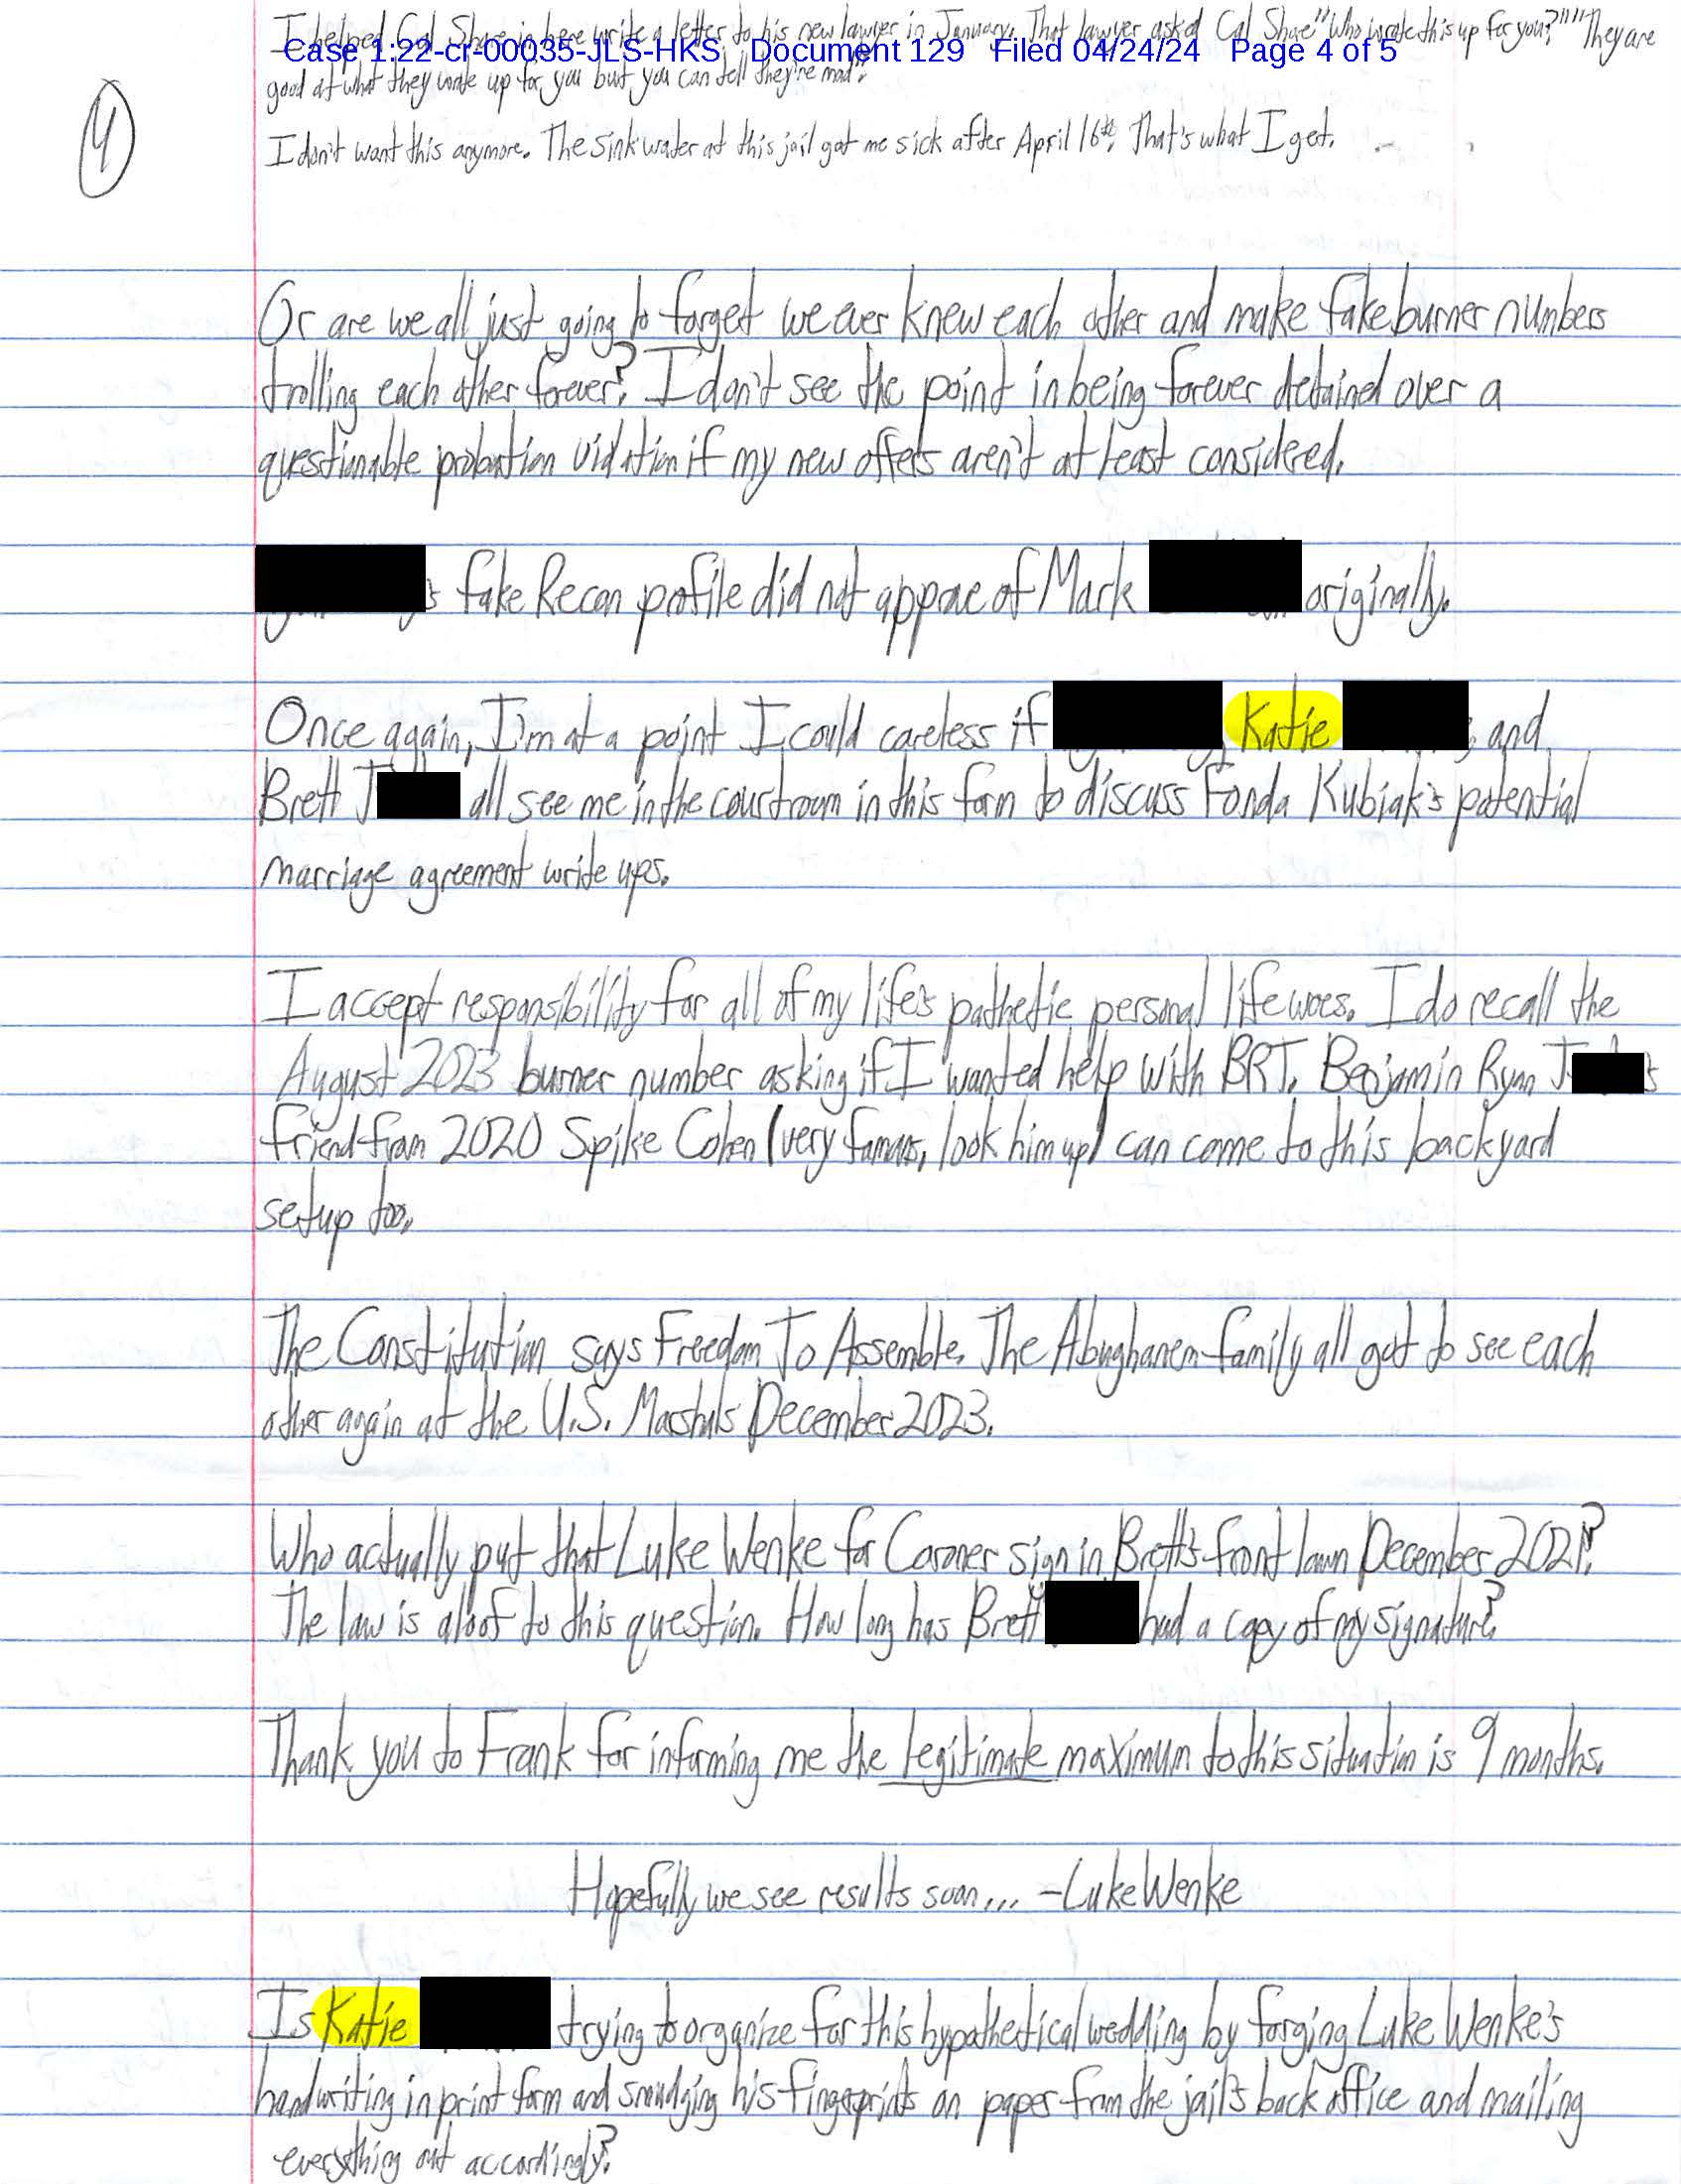 I helped Cal Shaw in here write a letter to his new lawyer in January. That lawyer asked Cal Shae "Who wrote this up for you?" "They are
Case 1:22-cr-00035-JLS-HKS Document 129 Filed 04/24/24 Page 4 of 5
good at what they wrote up for you but you can tell they're mad".
4
I don't want this anymore. The sink water at this jail got me sick after April 16th. That's what I get.
Or are we all just going to forget we ever knew each other and make fake burner numbers
trolling each other forever? I don't see the point in being forever detained over a
questionable probation violation if my new offers aren't at least considered.
's fake Recon profile did not approve of Mark originally.
Once again, I'm at a point I could careless if Katie , and
Brett J all see me in the courtroom in this form to discuss Fonda Kubiak's potential
marriage agreement write ups.
I accept responsibility for all of my life's pathetic personal life woes. I do recall the
August 2023 burner number asking if I wanted help with BRT. Benjamin Ryan T s
friend from 2020 Spike Cohen (very famous, look him up) can come to this backyard
setup too.
The Constitution says Freedom To Assemble. The Abughanem family all got to see each
other again at the U.S. Marshals December 2023.
Who actually put that Luke Wenke for Coroner sign in Brett's front lawn December 2021?
The law is aloof to this question. How long has Brett had a copy of my signature?
Thank you to Frank for informing me the legitimate maximum to this situation is 9 months.
Hopefully we see results soon... -Luke Wenke
Is Katie trying to organize for this hypothetical wedding by forging Luke Wenke's
handwriting in print form and smudging his fingerprints on paper from the jail's back office and mailing
everything out accordingly?